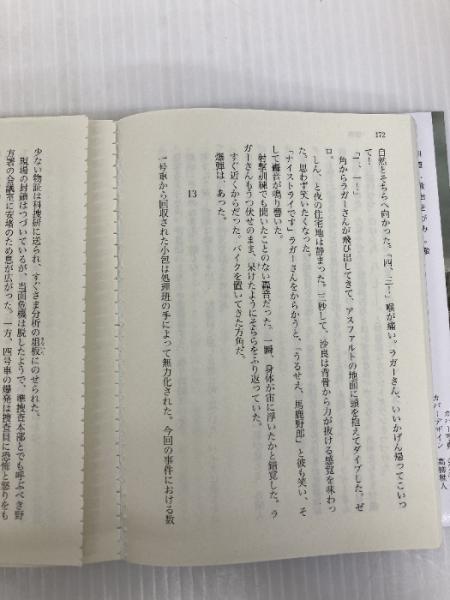 172
自然とそちらへ向かった。「四、三！」喉が痛い。ラガーさん、いいかげん帰ってこいっ
て！
「二、一！」
角からラガーさんが飛び出してきて、アスファルトの地面に頭を抱えてダイブした。ゼ
ロ。
しん、と夜の住宅地は静まった。三秒して、沙良は背骨から力が抜ける感覚を味わっ
た。思わず笑いたくなった。
「ナイストライです」ラガーさんをからかうと、「うるせえ、馬鹿野郎」と彼も笑い、そ
して轟音が鳴り響いた。
射撃訓練でも聞いたことのない轟音だった。一瞬、身体が宙に浮いたかと錯覚した。ラ
ガーさんもうつ伏せのまま、呆けたようにそちらをふり返っていた。
すぐ近くからだった。バイクを置いてきた方角だ。
爆弾は、あった。
13
一号車から回収された小包は処理班の手によって無力化された。今回の事件における数
少ない物証は科捜研に送られ、すぐさま分析の俎板にのせられた。
現場の封鎖はつづいているが、当面危機は脱したようで、準捜査本部とでも呼ぶべき野
方署の会議室に安堵のため息が広がった。一方、四号車の爆発は捜査員に恐怖と怒りをも
カバーデザイン 高柳雅人